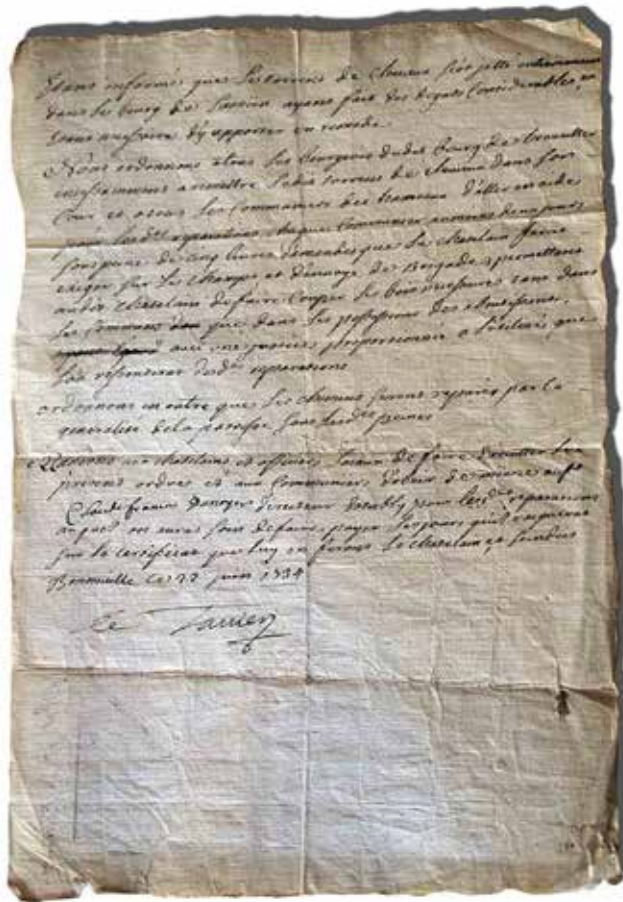 Etans informés que le torrent de s'est jetté
dans le bourg de ayant fait des degats Considerables, et
etant necessaire d'y apporter un remede.
Nous ordonnons a tous les bourgeois dudit bourg de travailler
incessamment a remettre ledit torrent de dans son
Cour et a tous les Communiers des hameaux d'aller en aide
pour lesd. reparations chaque Communier au moins deux jours
sous peine de cinq livres demandes que le chatelain faira
exiger sur le champ et d'envoye de Brigade, permettons
audit Chatelain de faire Couper les bois necessaires tant dans
les Communs que dans les possessions des
avec une justice proportionnée a l'utilité que
lon ressentiras desd. reparations
ordonnons en outre que les chemins seront reparés par la
generalité de la paroisse sous lesd. peines
Mandons aux chatelains et officiers locaux de faire executter les
presens ordres et aux Communiers d'obeir de meme au S.
Claude francois directeur etably pour lesd. reparations
auquel on auras soin de faire payer les jours qu'il
sur le certificat que luy en feront le chatelain et sindics
Bonneville ce 22 juin 1734